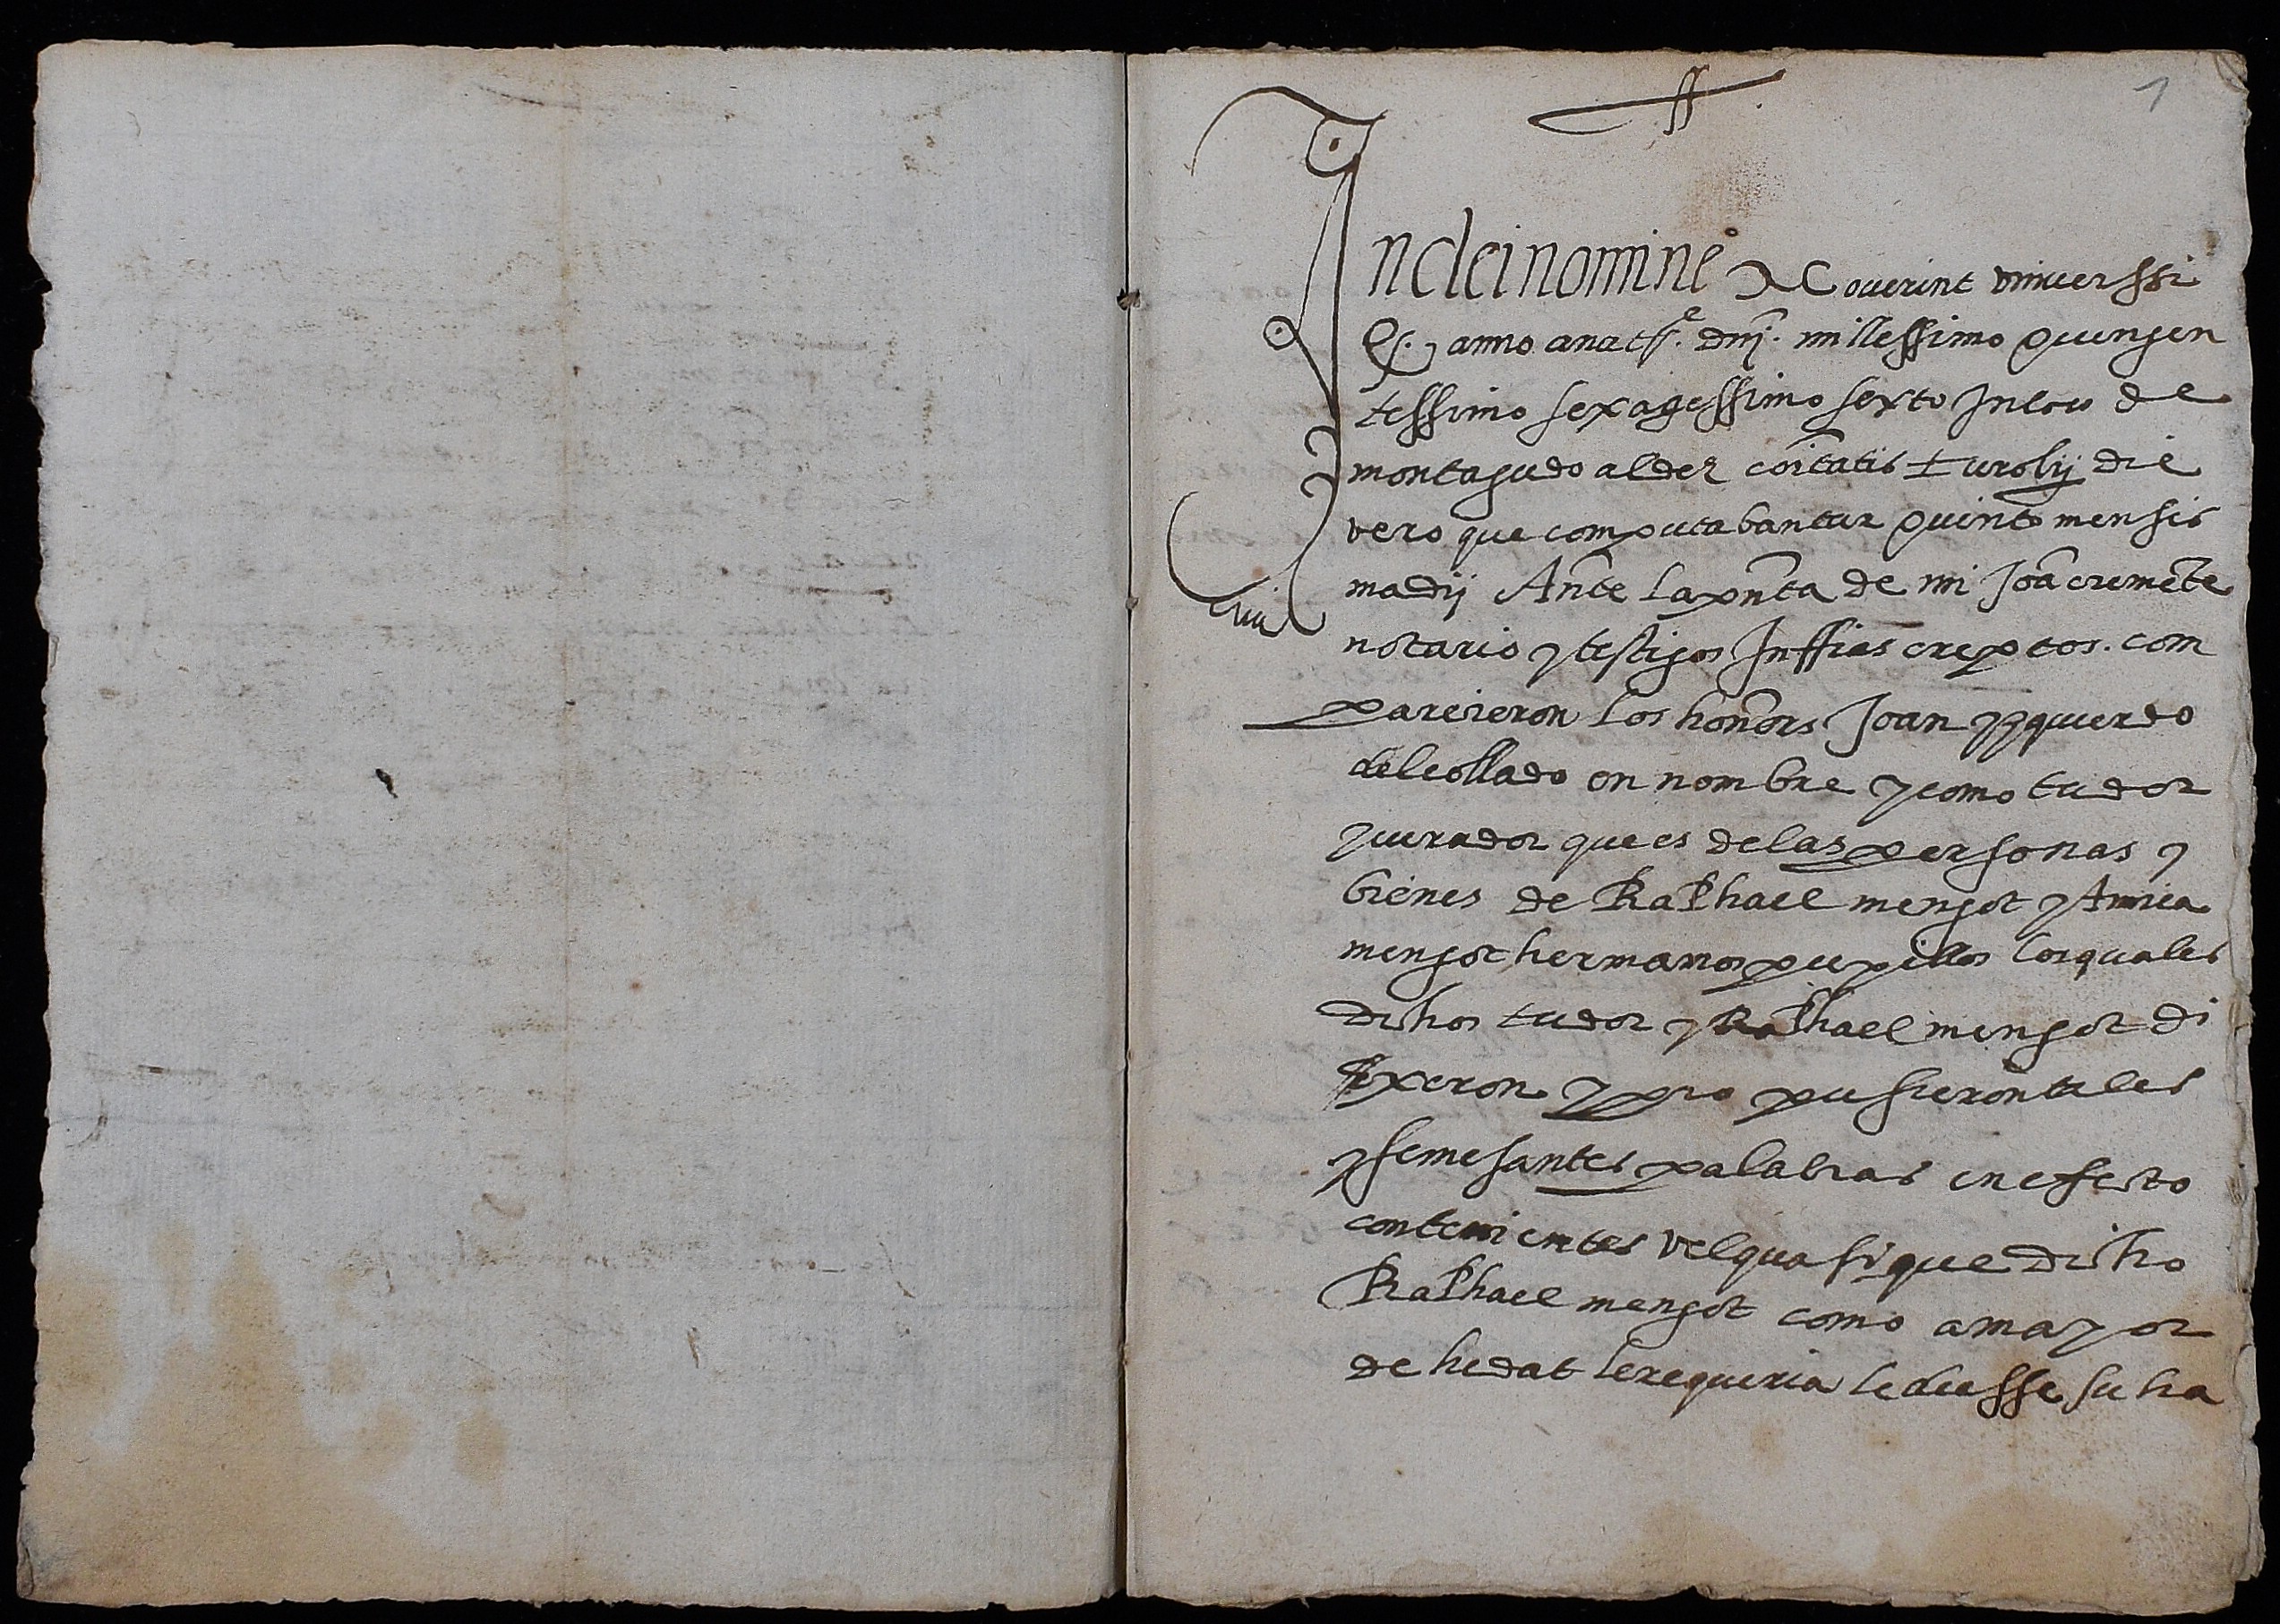 1
In dei nomine Noverint universsi
q̃. anno a natte. dñj. millessimo quingen
tessimo sexagessimo sexto In loco de
montagudo aldeȝ coĩtatis turolij die
vero que computabantur quinto mensis
madij Ante la pñta de mi Joã cremẽte
notario y testigos Inffraescreptos. com
parecieron los honors Joan yzquierdo
del collado en nombre y como tudor
y curador que es de las personas y
bienes de Raphael mengot y Amica
mengot hermanos pupillos los quales
dichos tudor y Raphael mengot di
xeron y pro pusieron tales
y semejantes palabras en effecto
contenientes vel quasi que dicho
Raphael mengot como a mayor
de hedat le requeria le diesse su ha